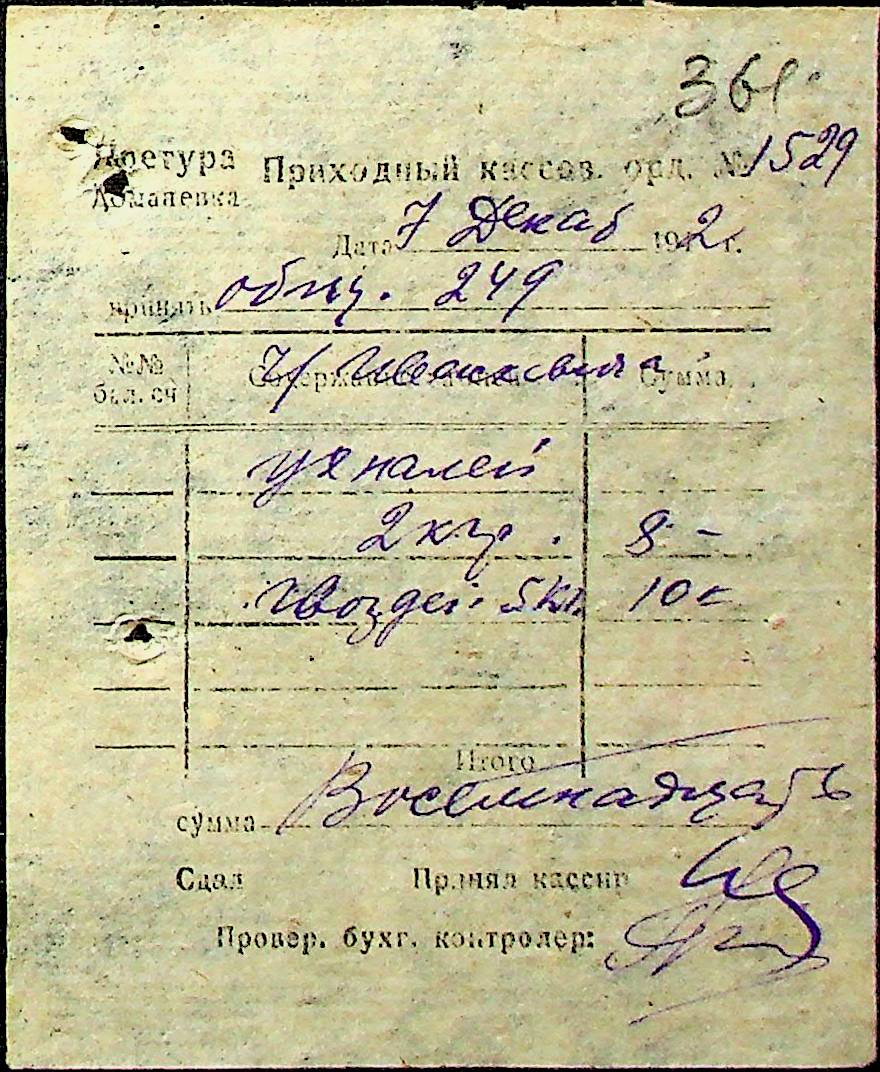 361
Претура Приходный кассов. орд. № 1529
Доманевка
Дата 7 Декаб 1942 г.
принять общ. 249
№№ Содержание Сумма
бал. сч
ч/
ухналей
2 кгр. 8 -
гвоздей 5 кг. 10 -
Итого
сумма Восемнадцать
Сдал Принял кассир
Провер. бухг. контролер: